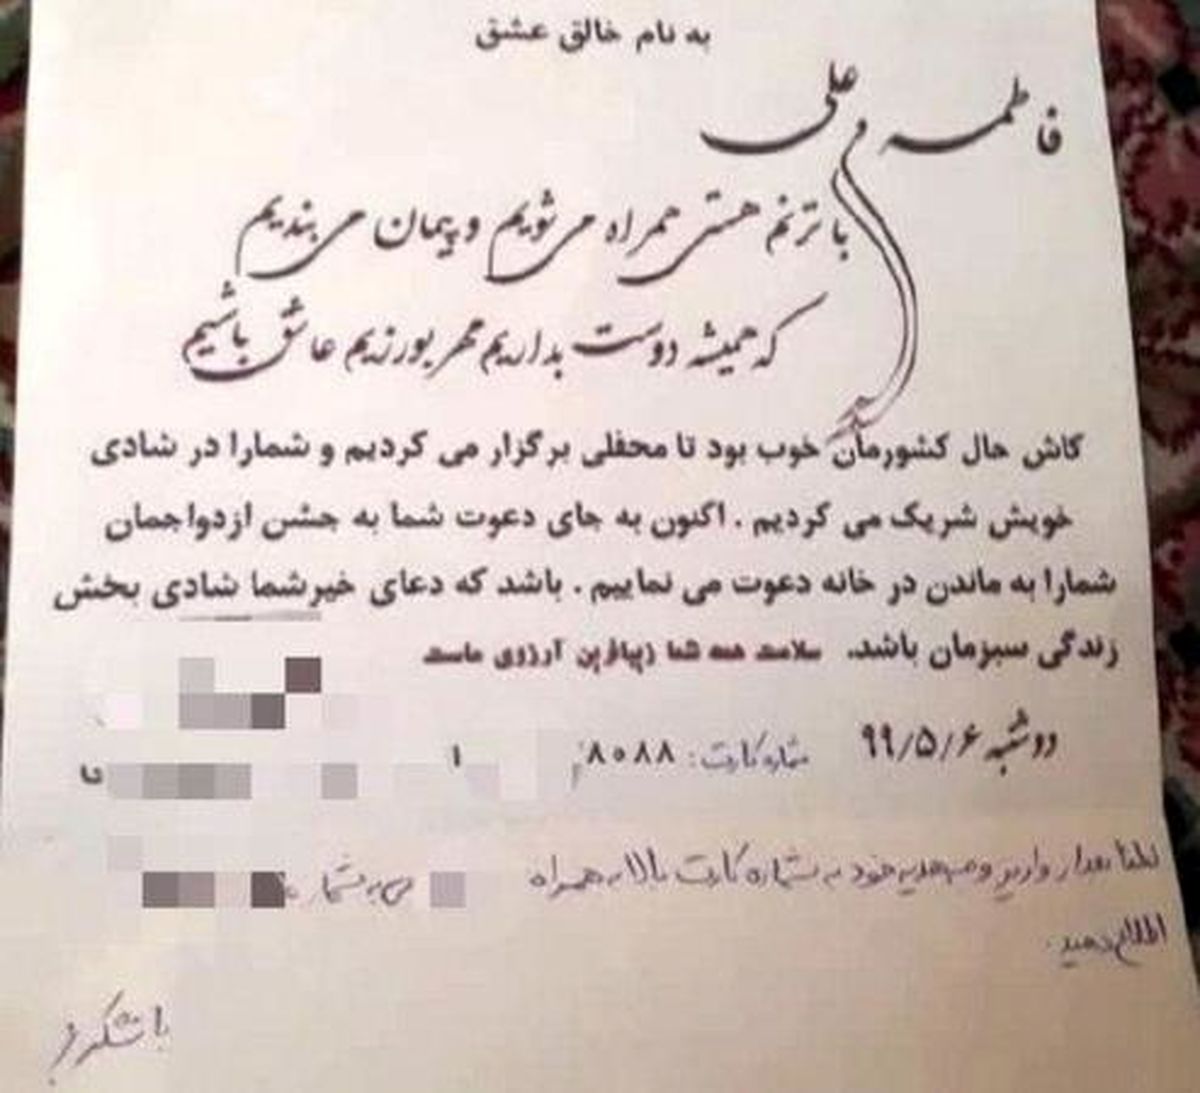 به نام خالق عشق
فاطمه و علی
با ترنم هستی همراه می شویم و پیمان می بندیم
که همیشه دوست بداریم مهر بورزیم عاشق باشیم
کاش حال کشورمان خوب بود تا محفلی برگزار می کردیم و شمارا در شادی
خویش شریک می کردیم . اکنون به جای دعوت شما به جشن ازدواجمان
شمارا به ماندن در خانه دعوت می نماییم . باشد که دعای خیرشما شادی بخش
زندگی سبزمان باشد. سلامت همه شما زیباترین آرزوی ماست
دوشنبه ۹۹/۵/۶ شماره کارت: ۸۰۸۸ ۱
لطفا بعد از واریز وجه هدیه خود به شماره کارت بالا به همراه به شماره
اطلاع دهید.
با تشکر